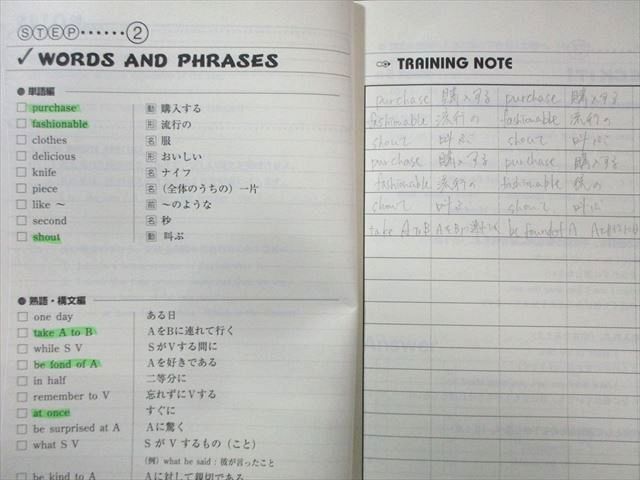 STEP……②
✓WORDS AND PHRASES
●単語編
□ purchase 動 購入する
□ fashionable 形 流行の
□ clothes 名 服
□ delicious 形 おいしい
□ knife 名 ナイフ
□ piece 名 (全体のうちの) 一片
□ like ～ 前 ～のような
□ second 名 秒
□ shout 動 叫ぶ
●熟語・構文編
□ one day ある日
□ take A to B AをBに連れて行く
□ while S V SがVする間に
□ be fond of A Aを好きである
□ in half 二等分に
□ remember to V 忘れずにVする
□ at once すぐに
□ be surprised at A Aに驚く
□ what S V S が V するもの (こと)
(例) what he said : 彼が言ったこと
□ be kind to A Aに対して親切である
TRAINING NOTE
purchase 購入する purchase 購入する
fashionable 流行の fashionable 流行の
shout 叫ぶ shout 叫ぶ
purchase 購入する purchase 購入する
fashionable 流行の fashionable の
shout 叫ぶ shout 叫ぶ
take A to B AをBに be found of A